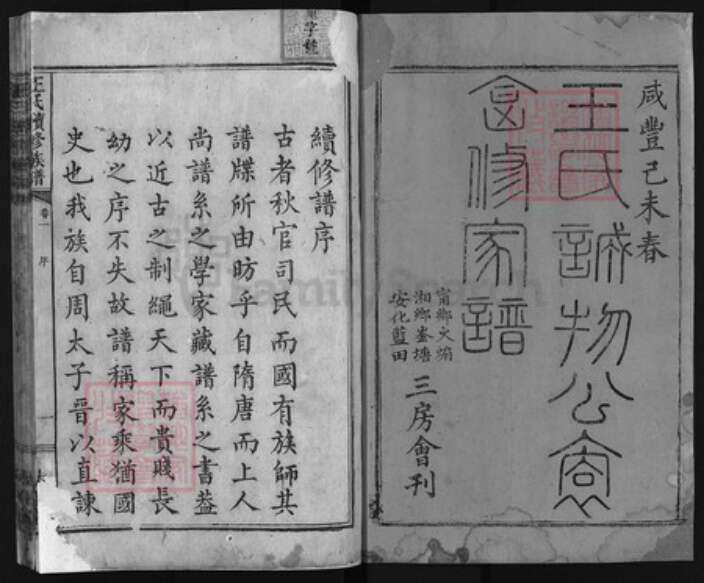 咸豐己未春
王氏誠物公裔
合修家譜
甯鄉大塘
湘鄉峚塘
安化藍田
三房會刊
續修譜序
古者秋官司民而國有族師其
譜牒所由昉乎自隋唐而上人
尚譜系之學家藏譜系之書葢
以近古之制繩天下而貴賤長
幼之序不失故譜稱家乘猶國
史也我族自周太子晉以直諫
王氏續修族譜
卷一
序
一